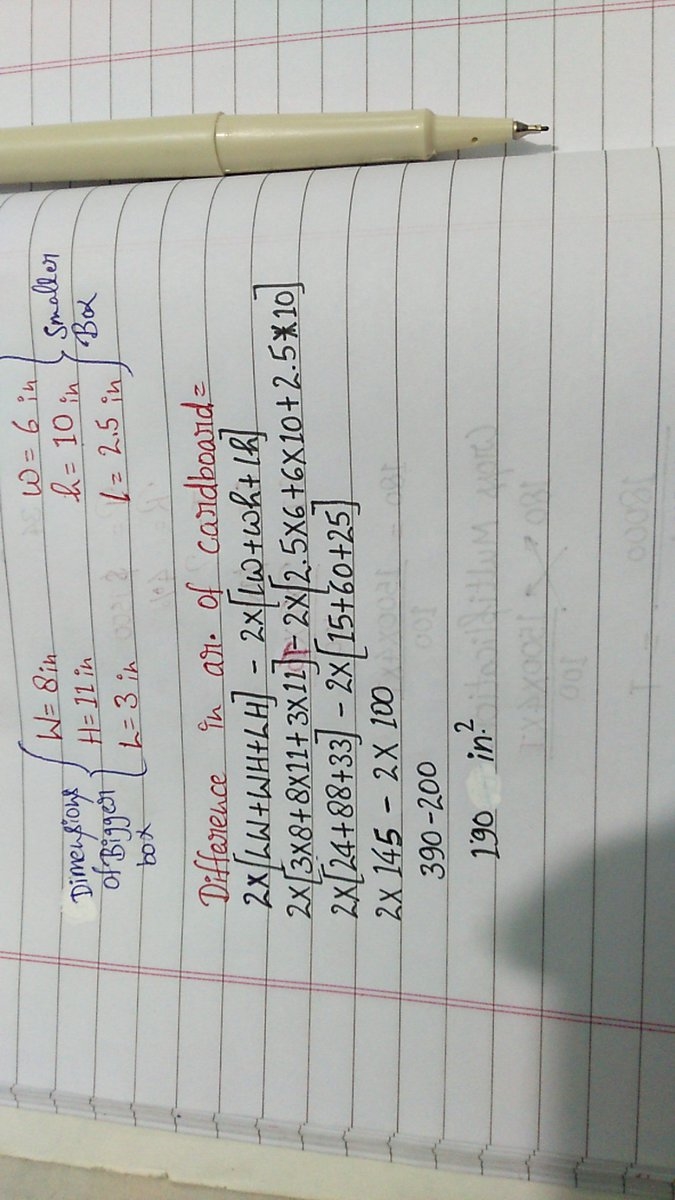 Dimensions of Bigger box
W = 8 in
H = 11 in
L = 3 in
w = 6 in
h = 10 in
l = 2.5 in
Smaller Box
Difference in ar. of cardboard =
2X[LW+WH+LH] - 2X[lw+wh+lh]
2X[3X8+8X11+3X11] - 2X[2.5X6+6X10+2.5X10]
2X[24+88+33] - 2X[15+60+25]
2X 145 - 2X 100
390-200
190 in.²